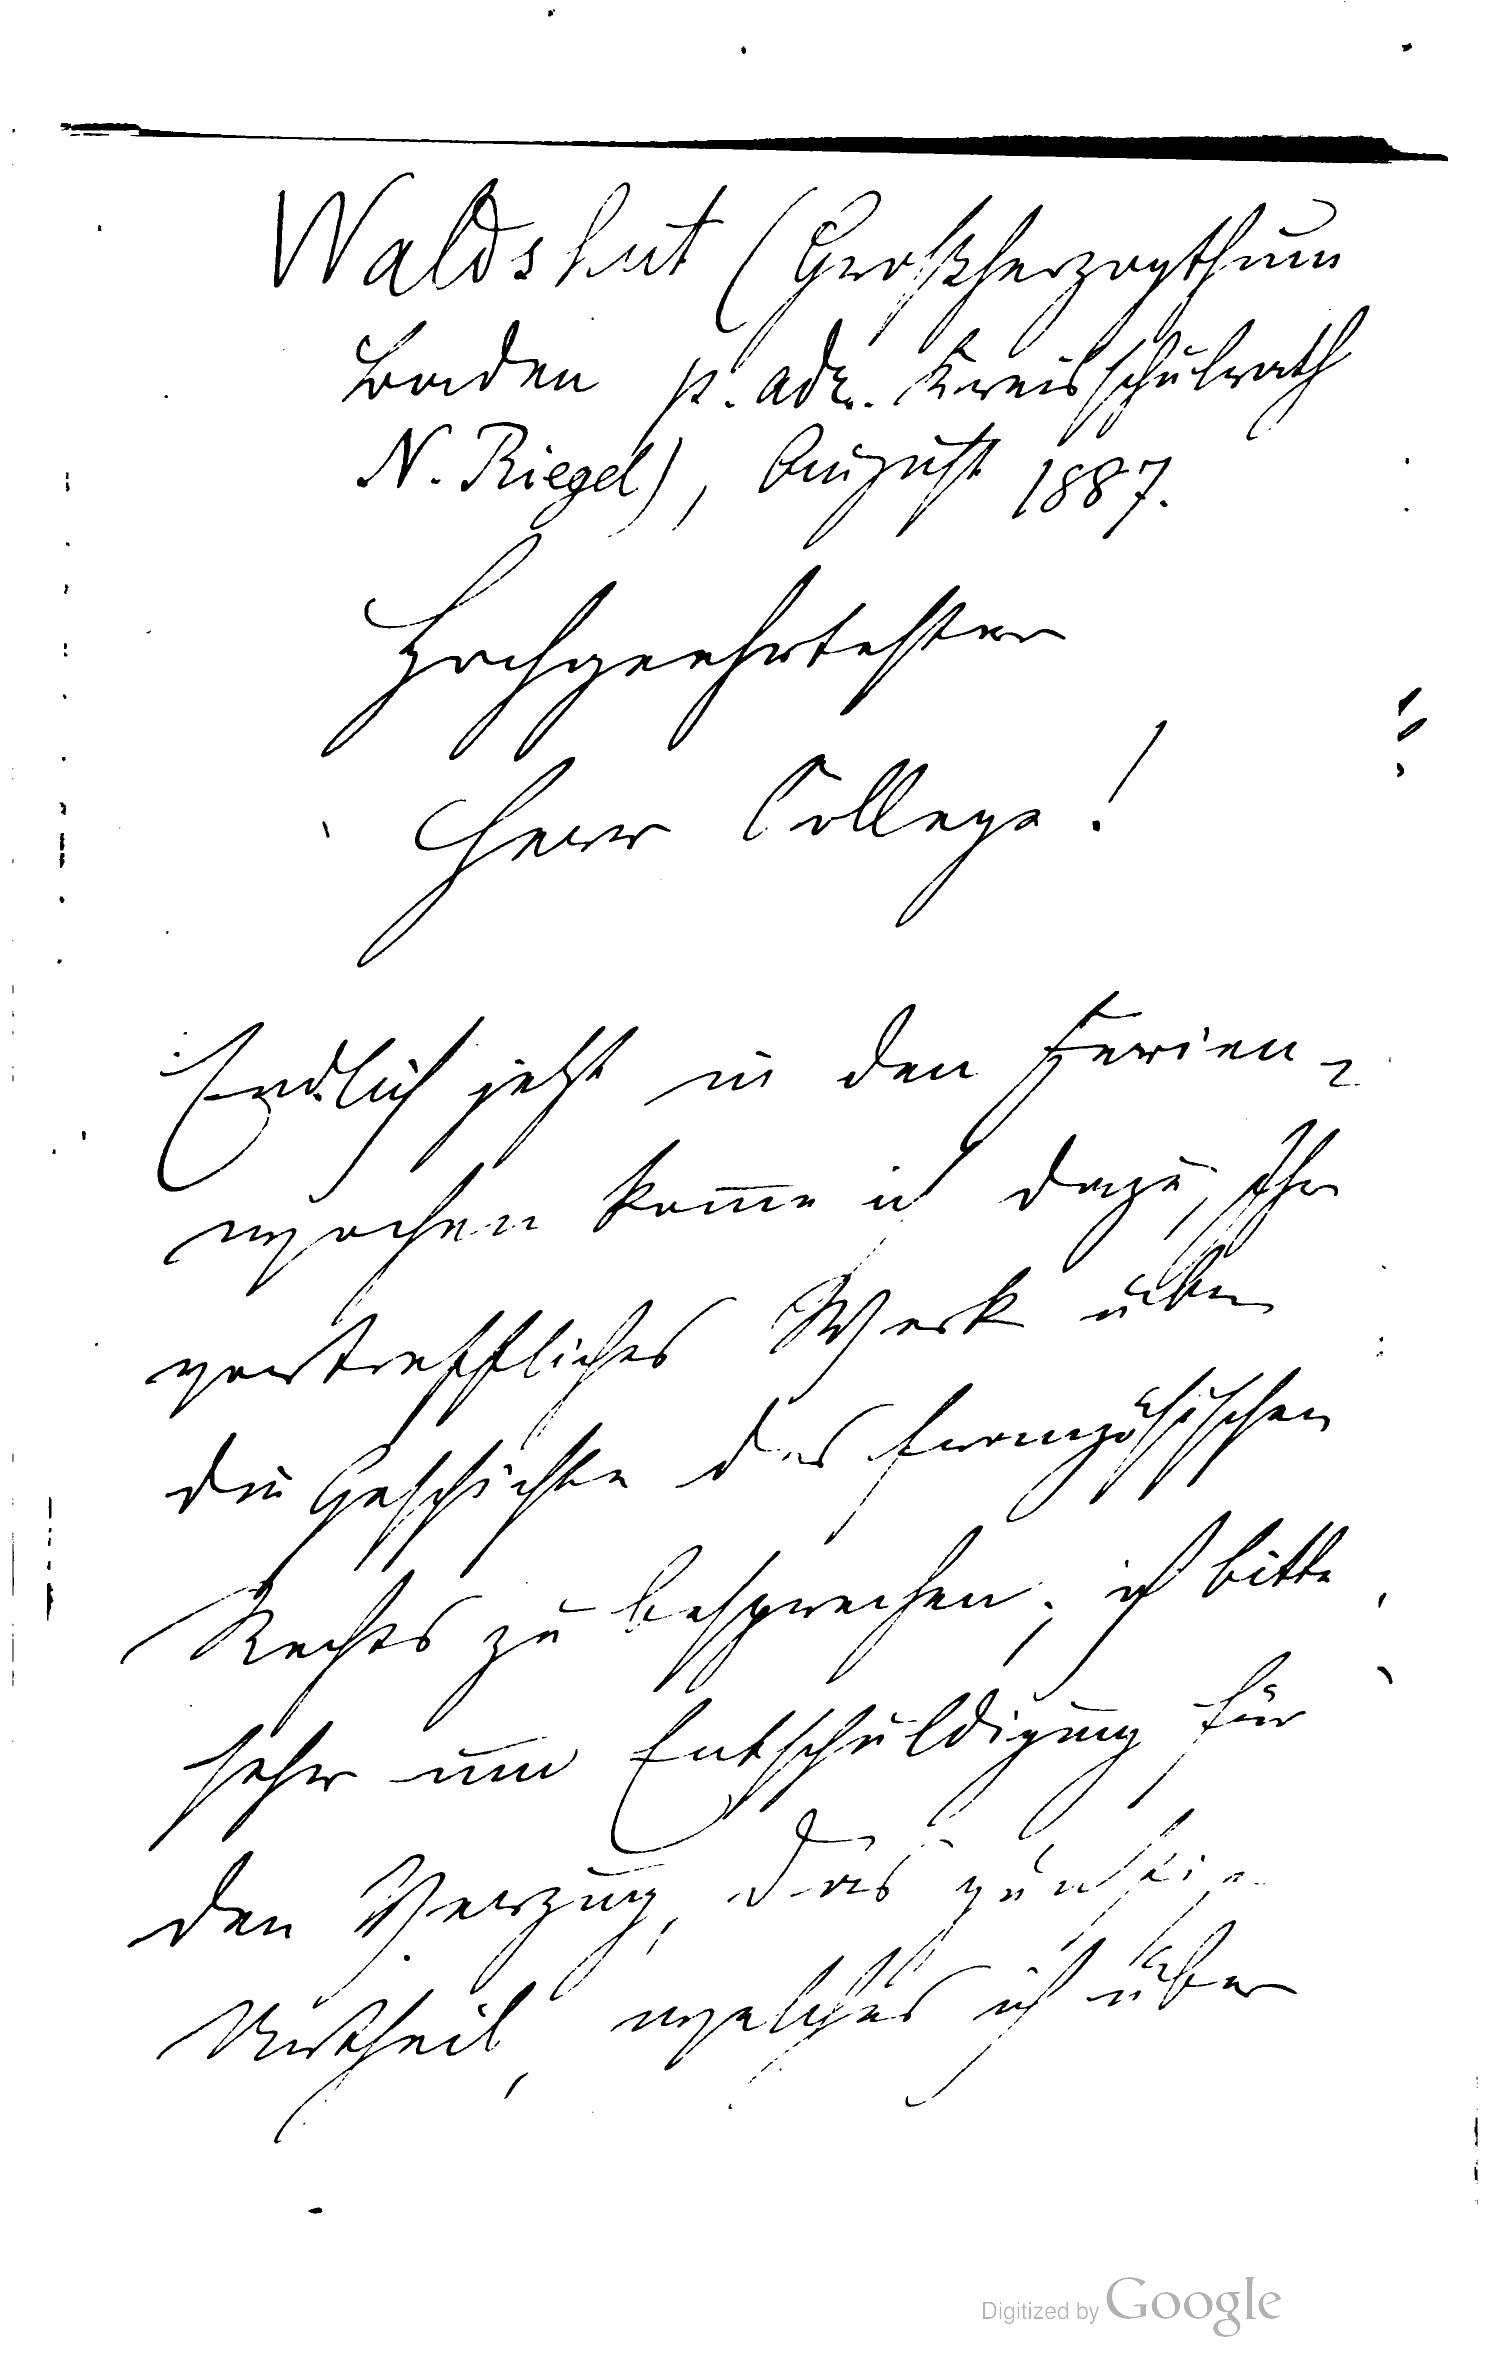 Waldshut (Großherzogthum
Baden p. adr. Kreisschulrath
N. Riegel), August 1887.
Hochgeehrtester
Herr College!
Endlich jetzt in den Ferien-
wochen kom̅e ich dazu, Ihr
vortreffliches Werk über
die Geschichte des französischen
Rechts zu besprechen; ich bitte
sehr um Entschuldigung für
den Verzug, das günstige
Urtheil, welches ich über
Digitized by Google